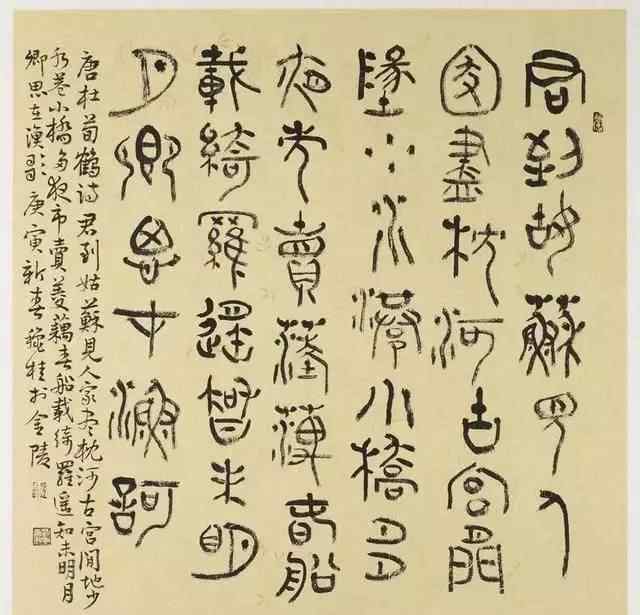 君到姑蘇見人
家盡枕河古宮閒
地少水港小橋多
夜市賣菱藕春船
載綺羅遙知未明
月鄉思在漁歌
唐杜荀鶴詩君到姑蘇見人家尽枕河古宮閒地少
水巷小橋多夜市賣菱藕春船載綺羅遥知未明月
鄉思在漁歌庚寅新春桂於金陵